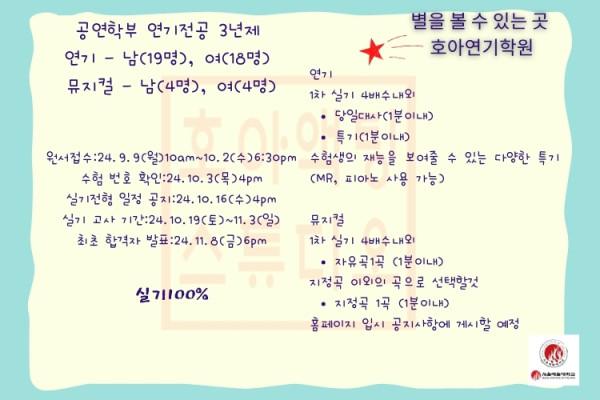 공연학부 연기전공 3년제
연기 - 남(19명), 여(18명)
뮤지컬 - 남(4명), 여(4명)
원서접수:24.9.9(월)10am~10.2(수)6:30pm
수험 번호 확인:24.10.3(목)4pm
실기전형 일정 공지:24.10.16(수)4pm
실기 고사 기간:24.10.19(토)~11.3(일)
최초 합격자 발표:24.11.8(금)6pm
실기100%
별을 볼 수 있는 곳
호아연기학원
연기
1차 실기 4배수내외
• 당일대사(1분이내)
• 특기(1분이내)
수험생의 재능을 보여줄 수 있는 다양한 특기
(MR, 피아노 사용 가능)
뮤지컬
1차 실기 4배수내외
• 자유곡1곡 (1분이내)
지정곡 이외의 곡으로 선택할것
• 지정곡 1곡 (1분이내)
홈페이지 입시 공지사항에 게시할 예정
호아액팅
스튜디오
서울예술대학교